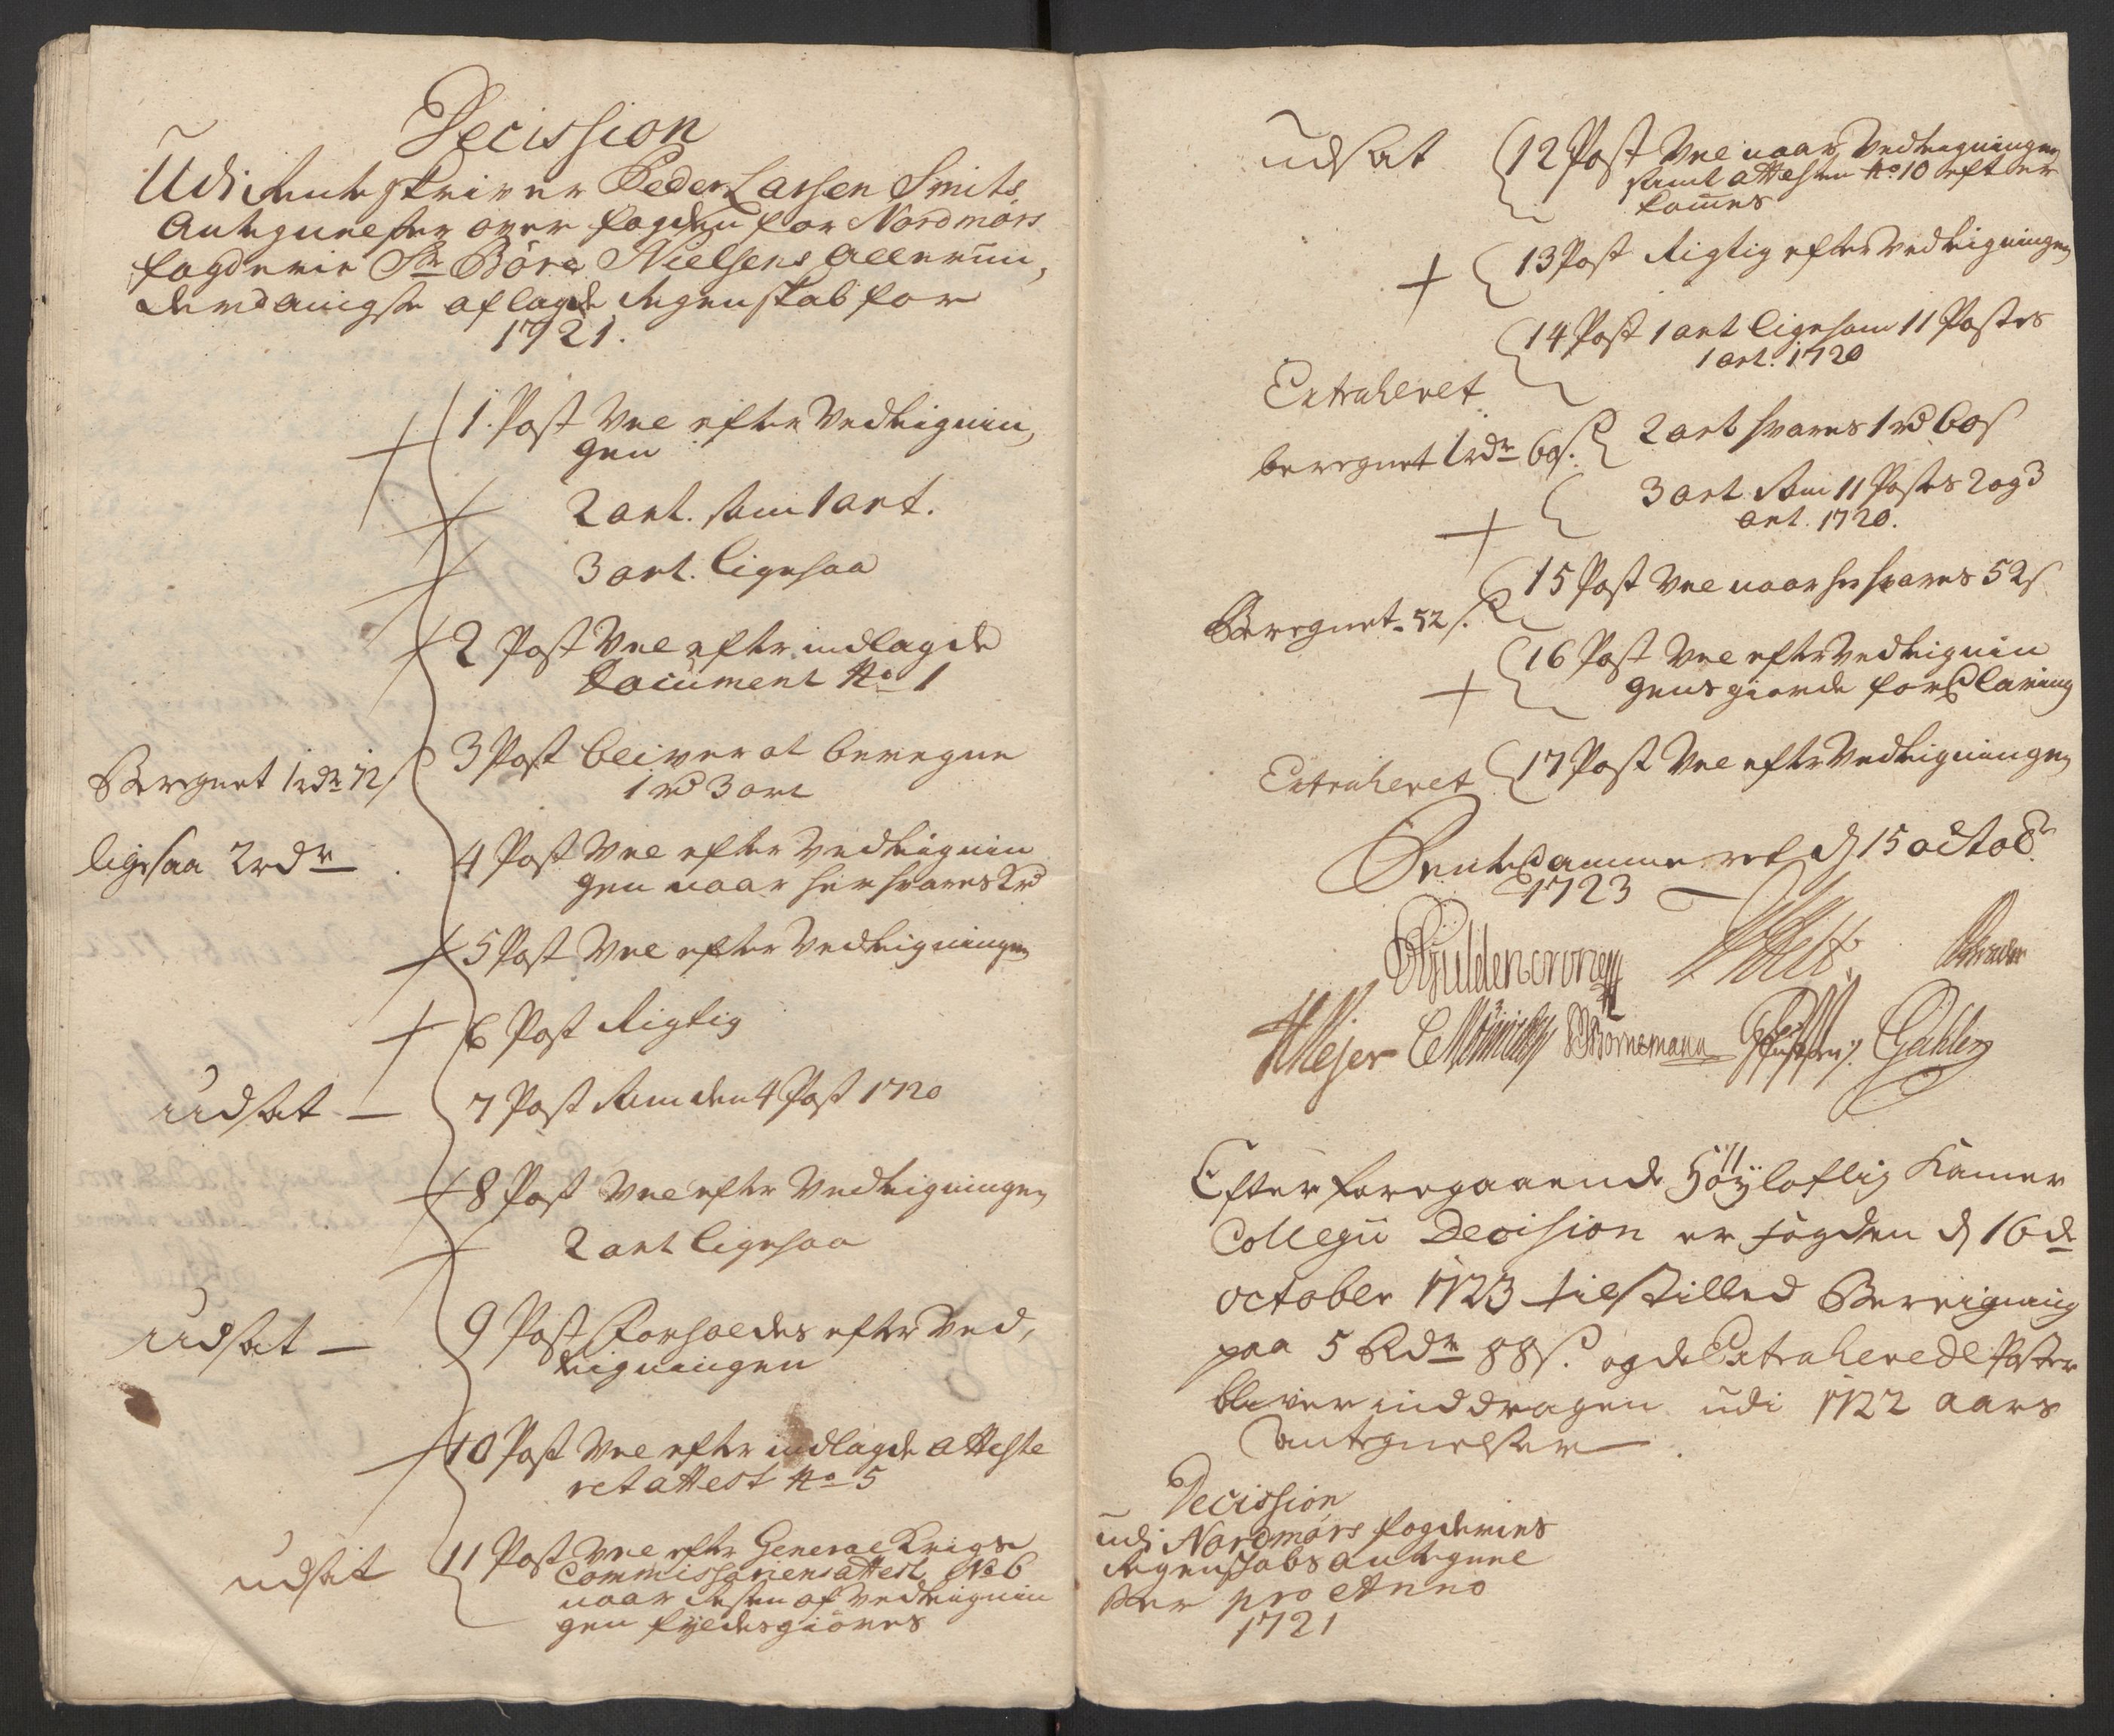 Decission
Udi Renteskriver Peder Larsen Smits
Antegnelser over fogden for Nordmørs
fogderie Sr Børe Nielsens allerun,
derdanigste aflagde Regenskab for
1721.
1. Post Vel efter Vedteignin,
gen
2 art. som 1 art.
3 art. ligesaa
2 Post Vel efter indlagde
Document No 1
Beregnet 1 rdr 72 s
3 Post bliver at beregne
1 rd 3 ort
ligesaa 2 rdr
4 Post Vel efter Vedteignin
gen naar her svares 2 rd
5 Post Vel efter Vedteigningen
6 Post Rigtig
udsat —
7 Post som den 4 Post 1720
8 Post Vel efter Vedteigningen
2 art ligesaa
udsat —
9 Post Forholdes efter Ved,
teigningen
10 Post Vel efter indlagde atteste
ret attest No 5
udsat
11 Post Vel efter General Krigs
Commissariens attest No 6
naar Resten af Vedteignin
gen fyldestgiöres
udsat
12 Post Vel naar Vedteigningen
samt attesten No 10 efter
kommes
13 Post Rigtig efter Vedteigningen
14 Post 1 art ligesom 11 Postes
1 art. 1720
Extraheret
beregnet 1 rdr 60 s.
2 art svares 1 rd 60 s
3 art som 11 Postes 2 og 3
art. 1720.
Beregnet 52 s.
15 Post Vel naar her svares 52 s
16 Post Vel efter Vedteignin
gens giorde forklaring
Extraheret
17 Post Vel efter Vedteigningen
Rentekammeret d 15 octobr
1723
Guldencrone
HMejer C Bornemann Gahler
Efter foregaaende Höÿloflig Kamer
Collegii Decision er fogden d 16de
october 1723 tilstilled Bereigning
paa 5 Rdr 88 s. og de Extraherede Poster
bliver inddragen udi 1722 aars
antegnelser
Decission
udi Nordmørs fogderies
Regenskabs antegnel
ser pro Anno
1721